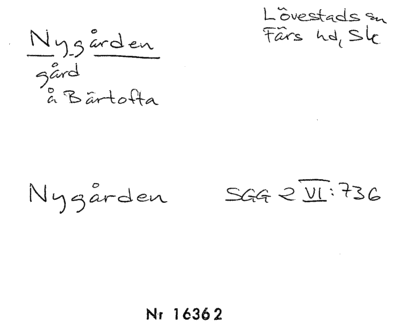 Nygården
gård
å Bärtofta
Lövestads sn
Färs hd, Sk
Nygården
SGG 2 VI:736
Nr 16362